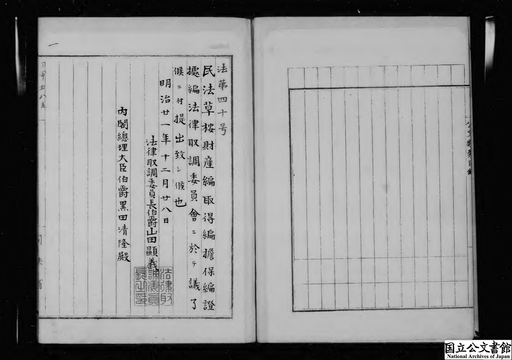 法第四十号
民法草按財産編取得編擔保編證
據編法律取調委員會ニ於テ議了
候ニ付提出致シ候也
明治廿一年十二月廿八日
法律取調委員長伯爵山田顯義
内閣總理大臣伯爵黒田清隆殿
国立公文書館
National Archives of Japan